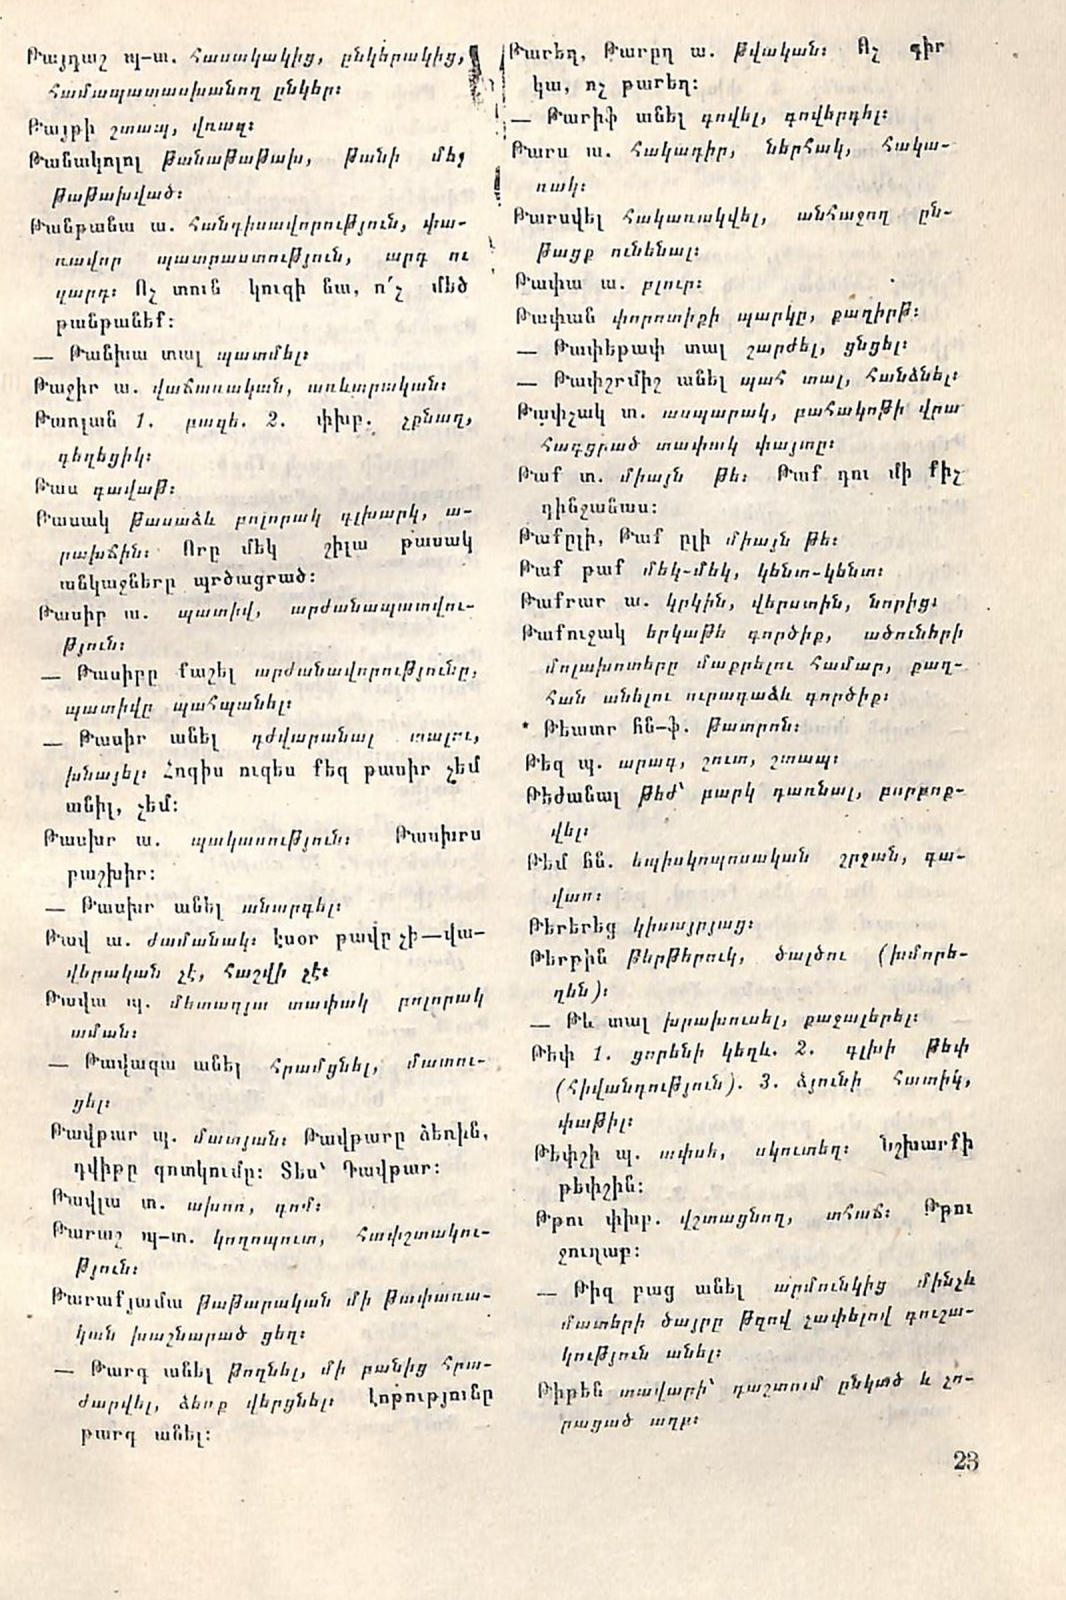 Թայդաշ պ–ա. հասակակից, ընկերակից,
համապատասխանող ընկեր։
Թայթի շտապ, վռազ։
Թանակոլոլ թանաթաթախ, թանի մեջ
թաթախված։
Թանթանա ա. հանդիսավորություն, փա-
ռավոր պատրաստություն, արդ ու
զարդ։ Ոչ տուն կուզի նա, ո՛չ մեծ
թանթանեք։
— Թանխա տալ պատմել։
Թաջիր ա. վաճառական, առևտրական։
Թառլան 1. բազե. 2. փխբ. չքնաղ,
գեղեցիկ։
Թաս գավաթ։
Թասակ թասաձև բոլորակ գլխարկ, ա-
րախճին։ Որը մեկ շիլա թասակ
անկաջները պրծացրած։
Թասիր ա. պատիվ, արժանապատվու-
թյուն։
— Թասիրը քաշել արժանավորությունը,
պատիվը պահպանել։
— Թասիր անել դժվարանալ տալու,
խնայել։ Հոգիս ուզես քեզ թասիր չեմ
անիլ, չեմ։
Թասխր ա. պակասություն։ Թասխրս
բաշխիր։
— Թասխր անել անարգել։
Թավ ա. ժամանակ։ Էսօր թավը չի—վա-
վերական չէ, հաշվի չէ։
Թավա պ. մետաղյա տափակ բոլորակ
աման։
— Թավազա անել հրամցնել, մատու-
ցել։
Թավթար պ. մատյան։ Թավթարը ձեռին,
դվիթը գոտկումը։ Տես՝ Դավթար։
Թավլա տ. ախոռ, գոմ։
Թարաշ պ–տ. կողոպուտ, հափշտակու-
թյուն։
Թարաքյամա թաթարական մի թափառա-
կան խաշնարած ցեղ։
— Թարգ անել թողնել, մի բանից հրա-
ժարվել, ձեռք վերցնել։ Լոթությունը
թարգ անել։
Թարեղ, Թարըղ ա. թվական։ Ոչ գիր
կա, ոչ թարեղ։
— Թարիֆ անել գովել, գովերգել։
Թարս ա. հակադիր, ներհակ, հակա-
ռակ։
Թարսվել հակառակվել, անհաջող ըն-
թացք ունենալ։
Թափա ա. բլուր։
Թափան փորոտիքի պարկը, քաղիրթ։
— Թափեթափ տալ շարժել, ցնցել։
— Թափշրմիշ անել պահ տալ, հանձնել։
Թափչակ տ. ասպարակ, բահակոթի վրա
հագցրած տափակ փայտը։
Թաք տ. միայն թե։ Թաք դու մի քիչ
դինջանաս։
Թաքըլի, Թաք ըլի միայն թե։
Թաք թաք մեկ-մեկ, կենտ-կենտ։
Թաքրար ա. կրկին, վերստին, նորից։
Թաքուջակ երկաթե գործիք, ածուների
մոլախոտերը մաքրելու համար, քաղ-
հան անելու ուրագաձև գործիք։
* Թեատր հն–ֆ. թատրոն։
Թեզ պ. արագ, շուտ, շտապ։
Թեժանալ թեժ՝ բարկ դառնալ, բորբոք-
վել։
Թեմ հն. եպիսկոպոսական շրջան, գա-
վառ։
Թերերեց կիսայրյաց։
Թերթին թերթերուկ, ծալծու (խմորե-
ղեն)։
— Թև տալ խրախուսել, քաջալերել։
Թեփ 1. ցորենի կեղև. 2. գլխի թեփ
(հիվանդություն). 3. ձյունի հատիկ,
փաթիլ։
Թեփշի պ. ափսե, սկուտեղ։ Նշխարքի
թեփշին։
Թթու փխբ. վշտացնող, տհաճ։ Թթու
ջուղաբ։
— Թիզ բաց անել արմունկից մինչև
մատերի ծայրը թզով չափելով գուշա-
կություն անել։
Թիթեն տավարի՝ դաշտում ընկած և չո-
րացած աղբ։
23